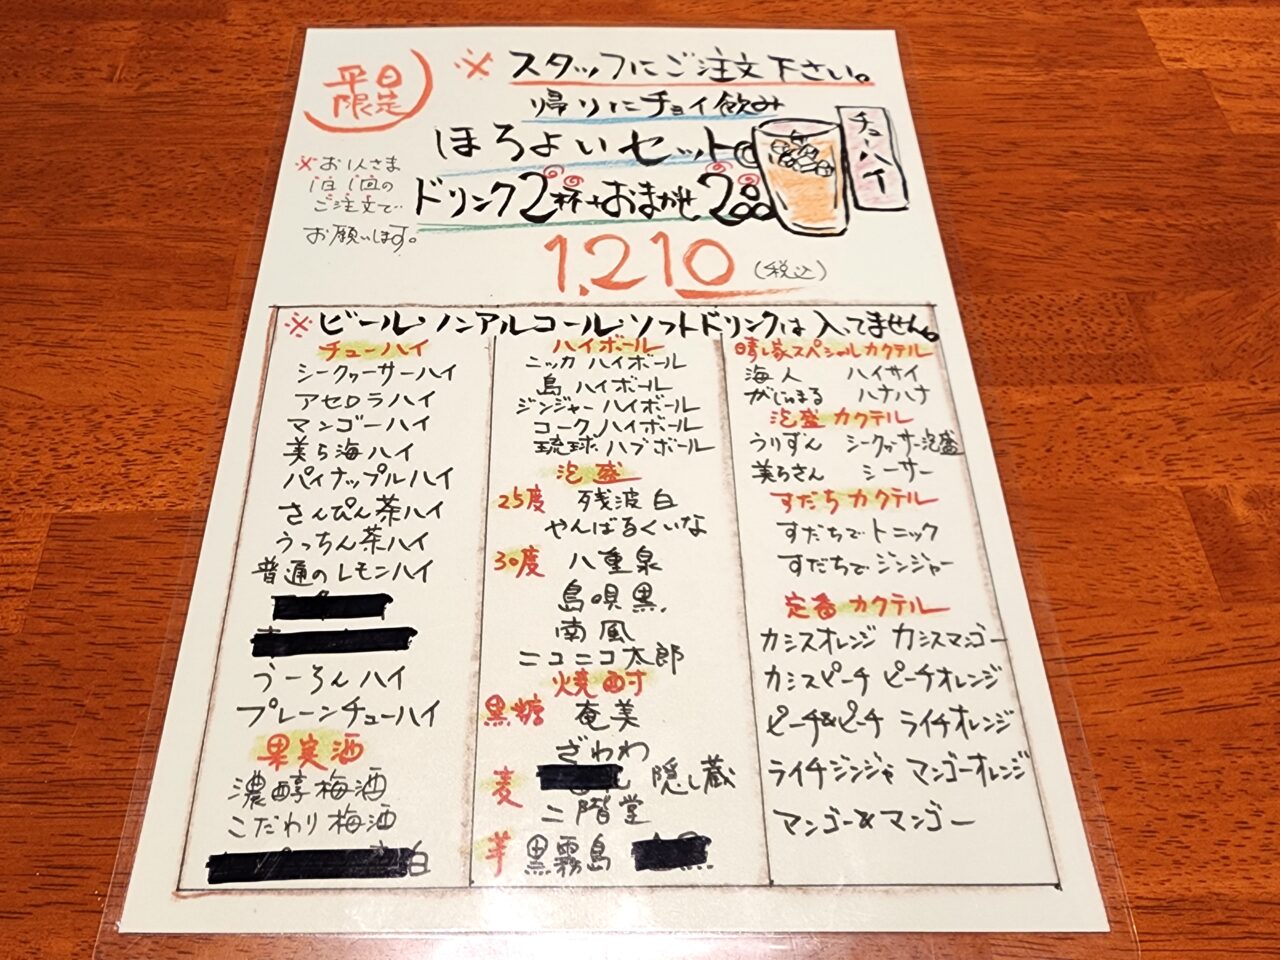 平日
限定
※スタッフにご注文下さい。
帰りにチョイ飲み
ほろよいセット
ドリンク2杯+おまかせ2品
※お1人さま
1日1回の
ご注文で
お願いします。
チューハイ
1,210(税込)
※ビール・ノンアルコール・ソフトドリンクは入ってません。
チューハイ
シークヮーサーハイ
アセロラハイ
マンゴーハイ
美ら海ハイ
パイナップルハイ
さんぴん茶ハイ
うっちん茶ハイ
普通のレモンハイ
うーろんハイ
プレーンチューハイ
果実酒
濃醇梅酒
こだわり梅酒
ハイボール
ニッカ ハイボール
島 ハイボール
ジンジャー ハイボール
コーク ハイボール
琉球 ハブボール
泡盛
25度 残波 白
やんばるくいな
30度 八重泉
島唄 黒
南風
ニコニコ太郎
焼酎
黒糖 奄美
ざわわ
麦 隠し蔵
二階堂
芋 黒霧島
晴れ家スペシャルカクテル
海人 ハイサイ
がじゅまる ハナハナ
泡盛カクテル
うりずん シークヮーサー泡盛
美らさん シーサー
すだちカクテル
すだちでトニック
すだちでジンジャー
定番カクテル
カシスオレンジ カシスマンゴー
カシスピーチ ピーチオレンジ
ピーチ&ピーチ ライチオレンジ
ライチジンジャ マンゴーオレンジ
マンゴー&マンゴー